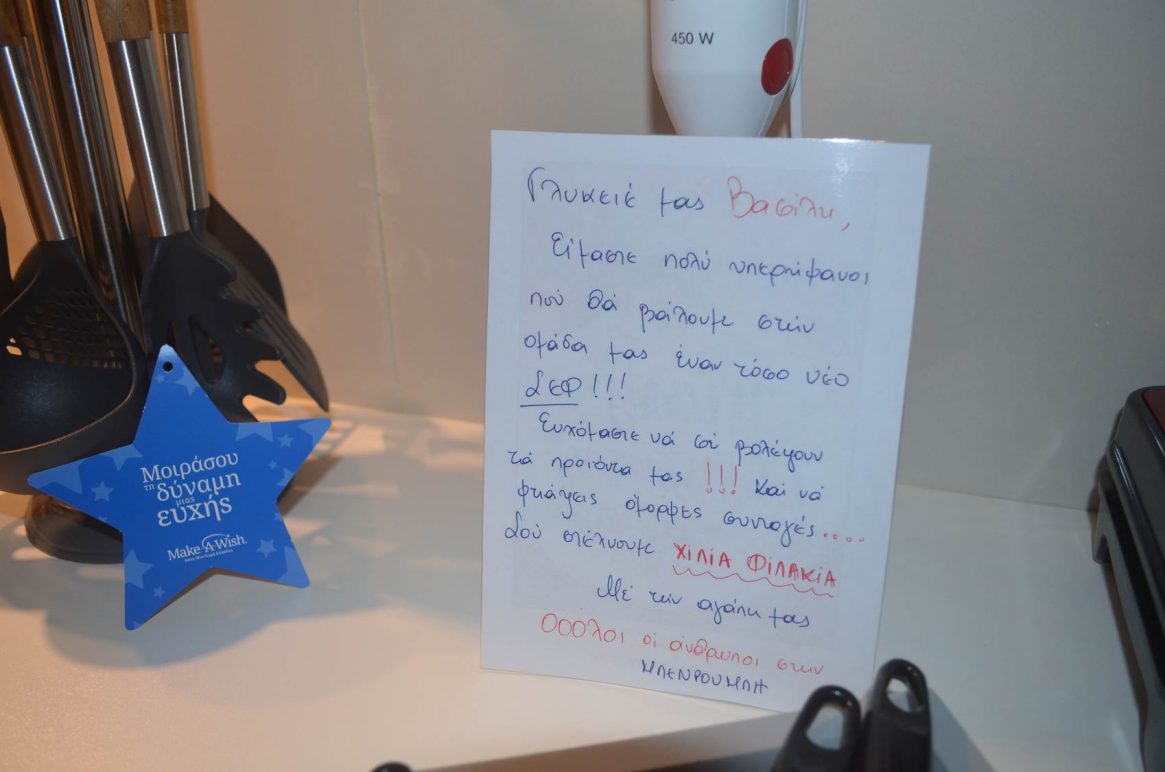 450 W
Γλυκειέ μας Βασίλη,
Είμαστε πολύ υπερήφανοι
πού θά βάλουμε στήν
ομάδα μας έναν τόσο νέο
ΣΕΦ!!!
Ευχόμαστε νά σέ βολέψουν
τά προϊόντα μας !!! Καί νά
φτιάξεις όμορφες συνταγές....
Σού στέλνουμε ΧΙΛΙΑ ΦΙΛΑΚΙΑ
Μέ τήν αγάπη μας
Οοόλοι οι άνθρωποι στην
ΜΠΕΝΡΟΥΜΠΗ
Μοιράσου
τη δύναμη
μιας
ευχής
Make-A-Wish